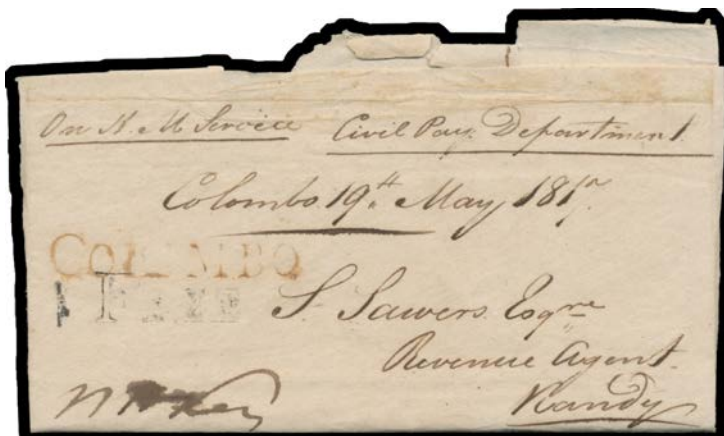 On H. M. Service Civil Pay Department.
Colombo 19th May 1817.
COLOMBO
FREE
S. Sawers Esqre
Revenue Agent.
Kandy